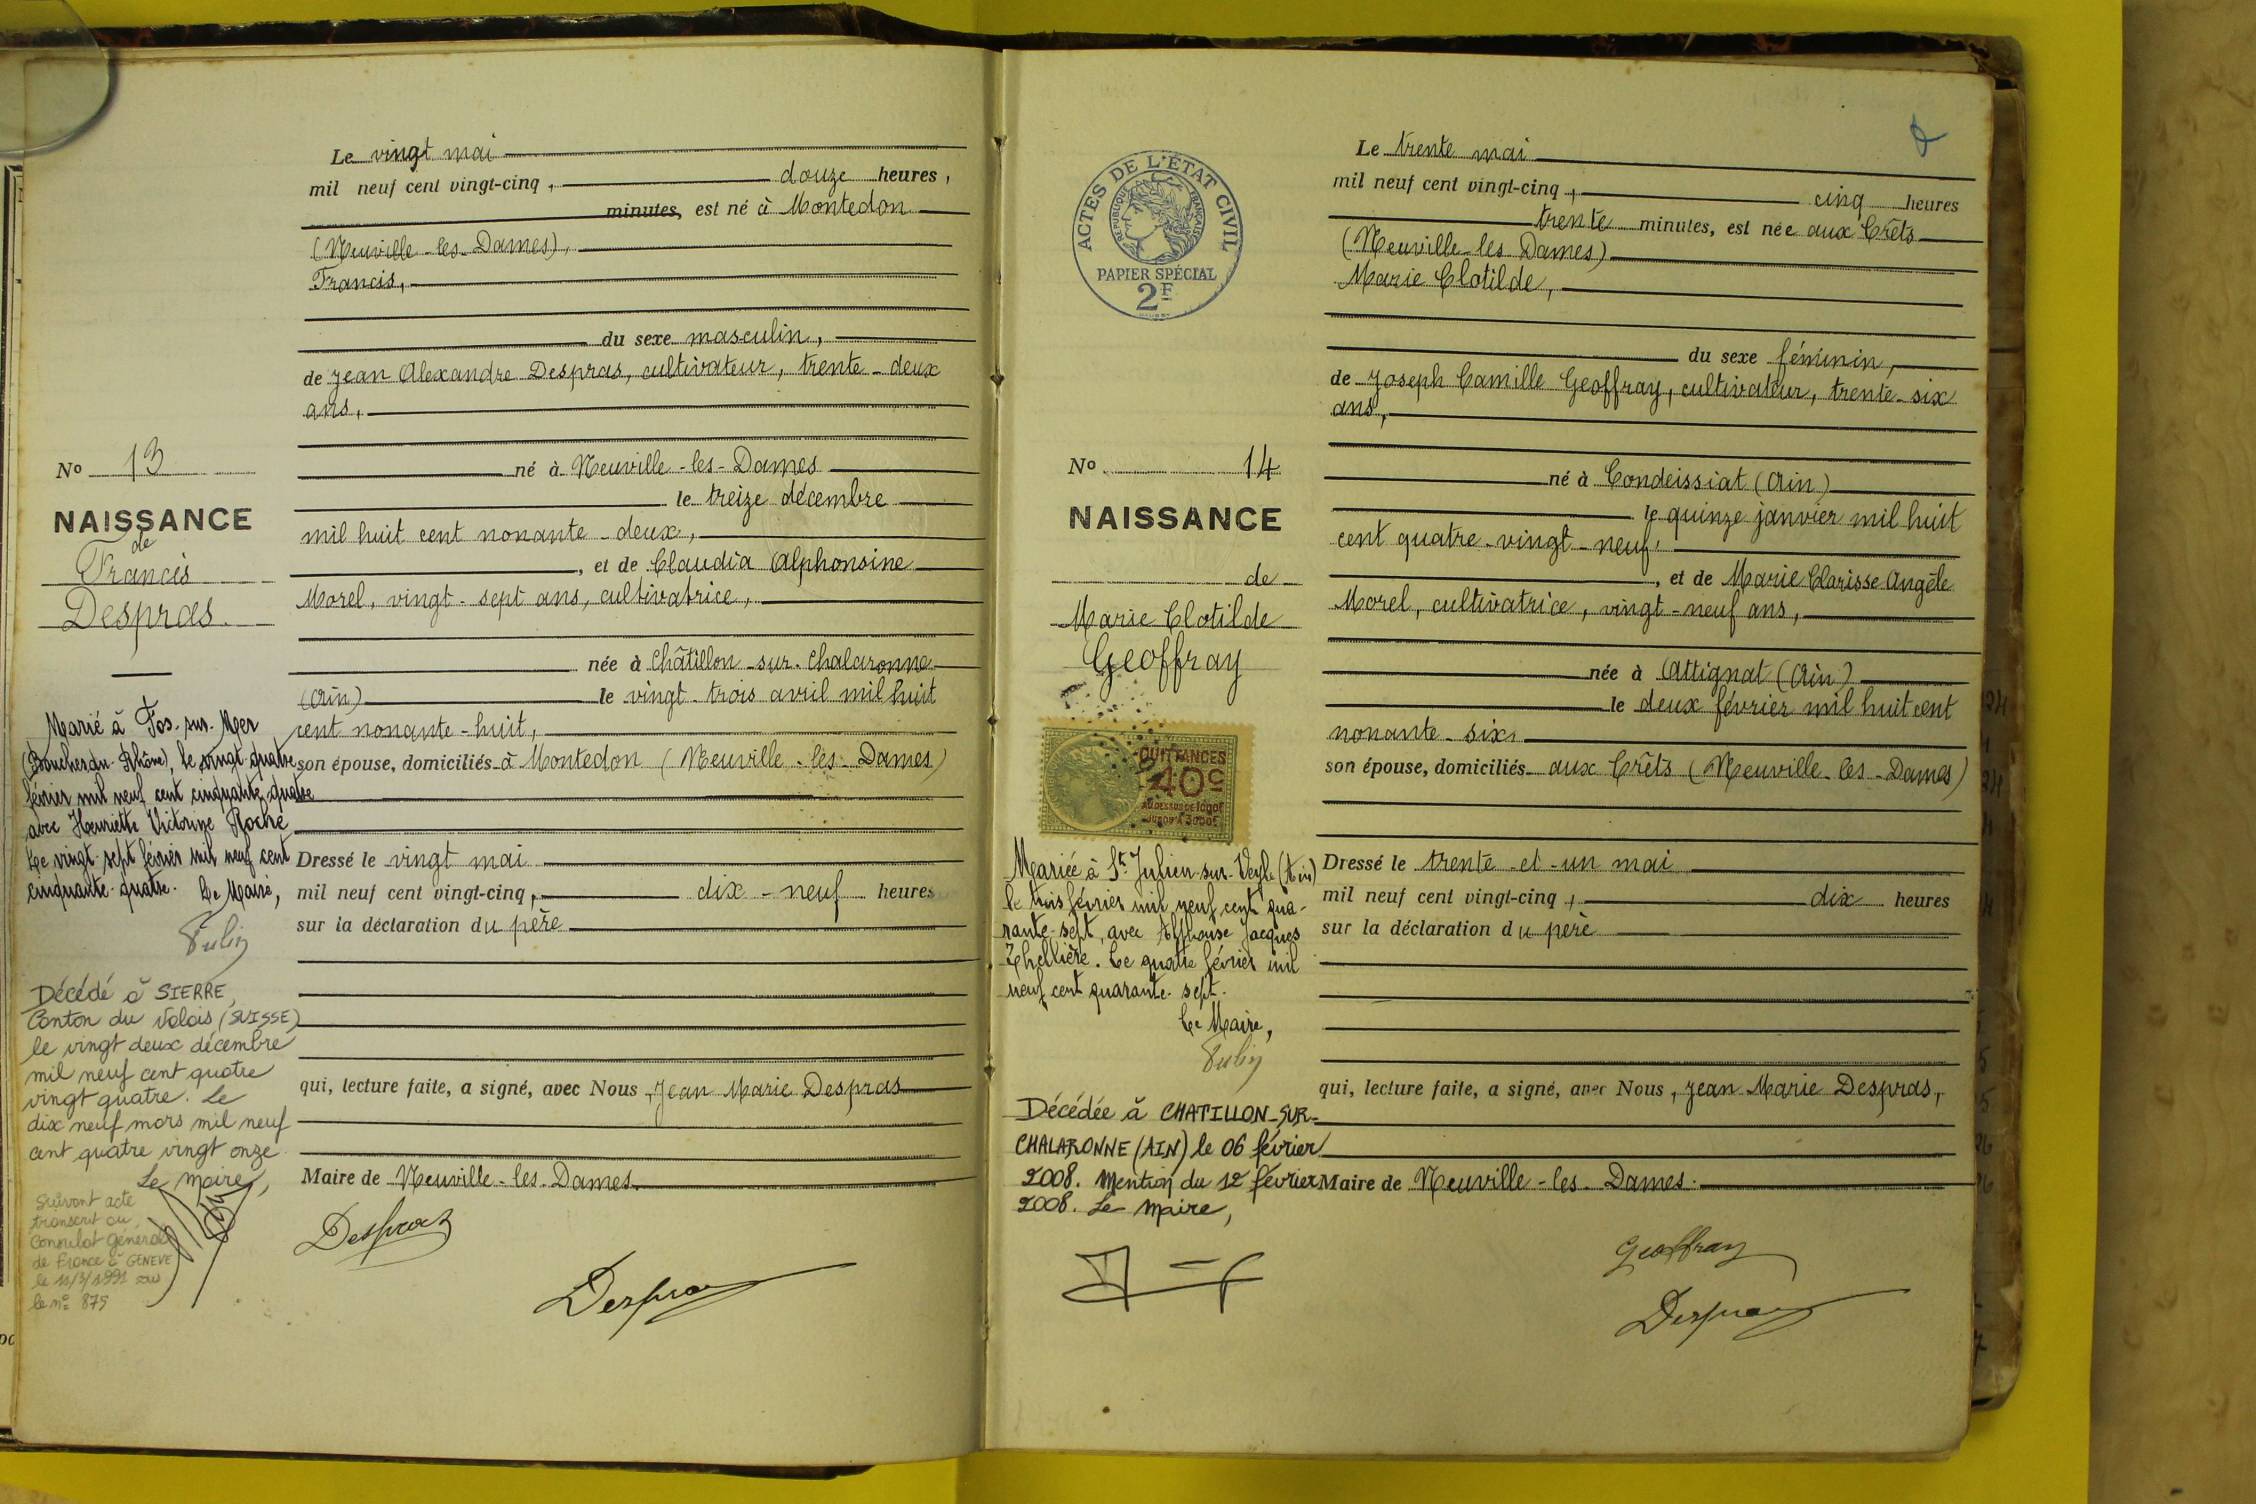 Le vingt mai
mil neuf cent vingt-cinq, douze heures,
minutes, est né à Montedon
(Neuville-les-Dames),
Francis,
du sexe masculin,
de Jean Alexandre Despras, cultivateur, trente-deux
ans,
né à Neuville-les-Dames
le treize décembre
mil huit cent nonante-deux,
, et de Claudia Alphonsine
Morel, vingt-sept ans, cultivatrice,
née à Châtillon-sur-Chalaronne
(Ain) le vingt-trois avril mil huit
cent nonante-huit,
son épouse, domiciliés à Montedon (Neuville-les-Dames)
Dressé le vingt mai
mil neuf cent vingt-cinq, dix-neuf heures
sur la déclaration du père
qui, lecture faite, a signé, avec Nous, Jean Marie Despras
Maire de Neuville-les-Dames.
Despras
Despras
No 13
NAISSANCE
de
Francis
Despras
Marié à Fos-sur-Mer
(Bouches du Rhône), le vingt-quatre
février mil neuf cent cinquante quatre
avec Henriette Victorine Roche
Le vingt-sept février mil neuf cent
cinquante-quatre. Le Maire,
Décédé à SIERRE,
Canton du Valais (SUISSE)
le vingt deux décembre
mil neuf cent quatre
vingt quatre. Le
dix neuf mars mil neuf
cent quatre vingt onze
Le maire,
Suivant acte
transcrit au
Consulat Général
de France à GENEVE
le 11/3/1991 sous
le n° 875
ACTES DE L'ÉTAT CIVIL
RÉPUBLIQUE FRANÇAISE
PAPIER SPÉCIAL
2F
No 14
NAISSANCE
de
Marie Clotilde
Geoffray
QUITTANCES
40c
AU DESSUS DE 1000F
JUSQU'A 3000F
Mariée à St Julien-sur-Veyle (Ain)
le trois février mil neuf cent qua-
rante-sept, avec Alphonse Jacques
Thellière. Le quatre février mil
neuf cent quarante-sept.
Le Maire,
Décédée à CHATILLON-SUR-
CHALARONNE (AIN) le 06 février
2008. Mention du 12 février
2008. Le Maire,
Le trente mai
mil neuf cent vingt-cinq, cinq heures
trente minutes, est née aux Crêts
(Neuville-les Dames)
Marie Clotilde,
du sexe féminin,
de Joseph Camille Geoffray, cultivateur, trente-six
ans,
né à Condeissiat (Ain)
le quinze janvier mil huit
cent quatre-vingt-neuf,
, et de Marie Clarisse Angèle
Morel, cultivatrice, vingt-neuf ans,
née à Attignat (Ain)
le deux février mil huit cent
nonante-six,
son épouse, domiciliés aux Crêts (Neuville-les-Dames)
Dressé le trente-et-un mai
mil neuf cent vingt-cinq, dix heures
sur la déclaration du père
qui, lecture faite, a signé, avec Nous, Jean Marie Despras,
Maire de Neuville-les-Dames.
Geoffray
Despras